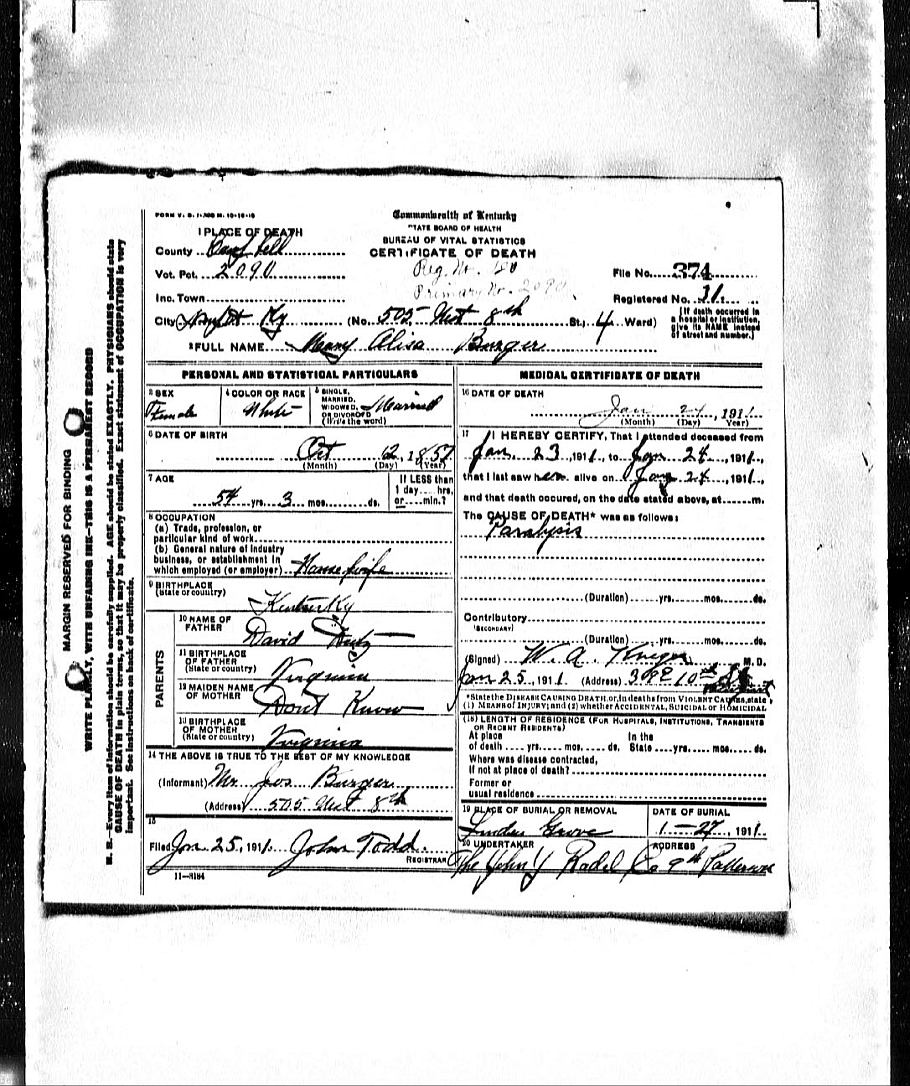 FORM V. S. 1-
Commonwealth of Kentucky
STATE BOARD OF HEALTH
BUREAU OF VITAL STATISTICS
CERTIFICATE OF DEATH
1 PLACE OF DEATH
County Campbell
Vot. Pct. 2090
Reg. No.
Primary No. 2090
File No. 374
Inc. Town
Registered No. 31
City Newport Ky (No. 505 West 8th St.; 4 Ward)
[If death occurred in a hospital or institution, give its NAME instead of street and number.]
2 FULL NAME Mary Alisa Burger
PERSONAL AND STATISTICAL PARTICULARS
3 SEX Female
4 COLOR OR RACE White
5 SINGLE, MARRIED, WIDOWED, OR DIVORCED (Write the word) Married
6 DATE OF BIRTH Oct 12, 1857
(Month) (Day) (Year)
7 AGE 54 yrs. 3 mos. ds.
If LESS than 1 day.... hrs. or.....min.?
8 OCCUPATION
(a) Trade, profession, or particular kind of work
(b) General nature of industry business, or establishment in which employed (or employer) Housewife
9 BIRTHPLACE (State or country) Kentucky
PARENTS
10 NAME OF FATHER David
11 BIRTHPLACE OF FATHER (State or country) Virginia
12 MAIDEN NAME OF MOTHER Dont Know
13 BIRTHPLACE OF MOTHER (State or country) Virginia
14 THE ABOVE IS TRUE TO THE BEST OF MY KNOWLEDGE
(Informant) Mr Jos Burger
(Address) 505 West 8th
15
Filed Jan 25, 1911. John Todd.
REGISTRAR
11-3184
MEDICAL CERTIFICATE OF DEATH
16 DATE OF DEATH
Jan 24, 1911
(Month) (Day) (Year)
17 I HEREBY CERTIFY, That I attended deceased from
Jan. 23 1911, to Jan. 24, 1911,
that I last saw her alive on Jan 24, 1911,
and that death occured, on the date stated above, at m.
The CAUSE OF DEATH* was as follows:
Paralysis
(Duration) yrs. mos. ds.
Contributory
(SECONDARY)
(Duration) yrs. mos. ds.
(Signed) W. A. Krieger M. D.
Jan 25, 1911. (Address) 10th St
*State the DISEASE CAUSING DEATH, or, in deaths from VIOLENT CAUSES, state
(1) MEANS OF INJURY; and (2) whether ACCIDENTAL, SUICIDAL OF HOMICIDAL
(18) LENGTH OF RESIDENCE (FOR HOSPITALS, INSTITUTIONS, TRANSIENTS
OR RECENT RESIDENTS)
At place of death yrs. mos. ds. In the State yrs. mos. ds.
Where was disease contracted, If not at place of death?
Former or usual residence
19 PLACE OF BURIAL OR REMOVAL
Linden Grove
DATE OF BURIAL
1-27, 1911.
20 UNDERTAKER
ADDRESS
The John J Radel Co 9th Patterson
MARGIN RESERVED FOR BINDING
WRITE PLAINLY, WITH UNFADING INK—THIS IS A PERMANENT RECORD
N. B.—Every item of information should be carefully supplied. AGE should be stated EXACTLY. PHYSICIANS should state
CAUSE OF DEATH in plain terms, so that it may be properly classified. Exact statement of OCCUPATION is very
important. See instructions on back of certificate.